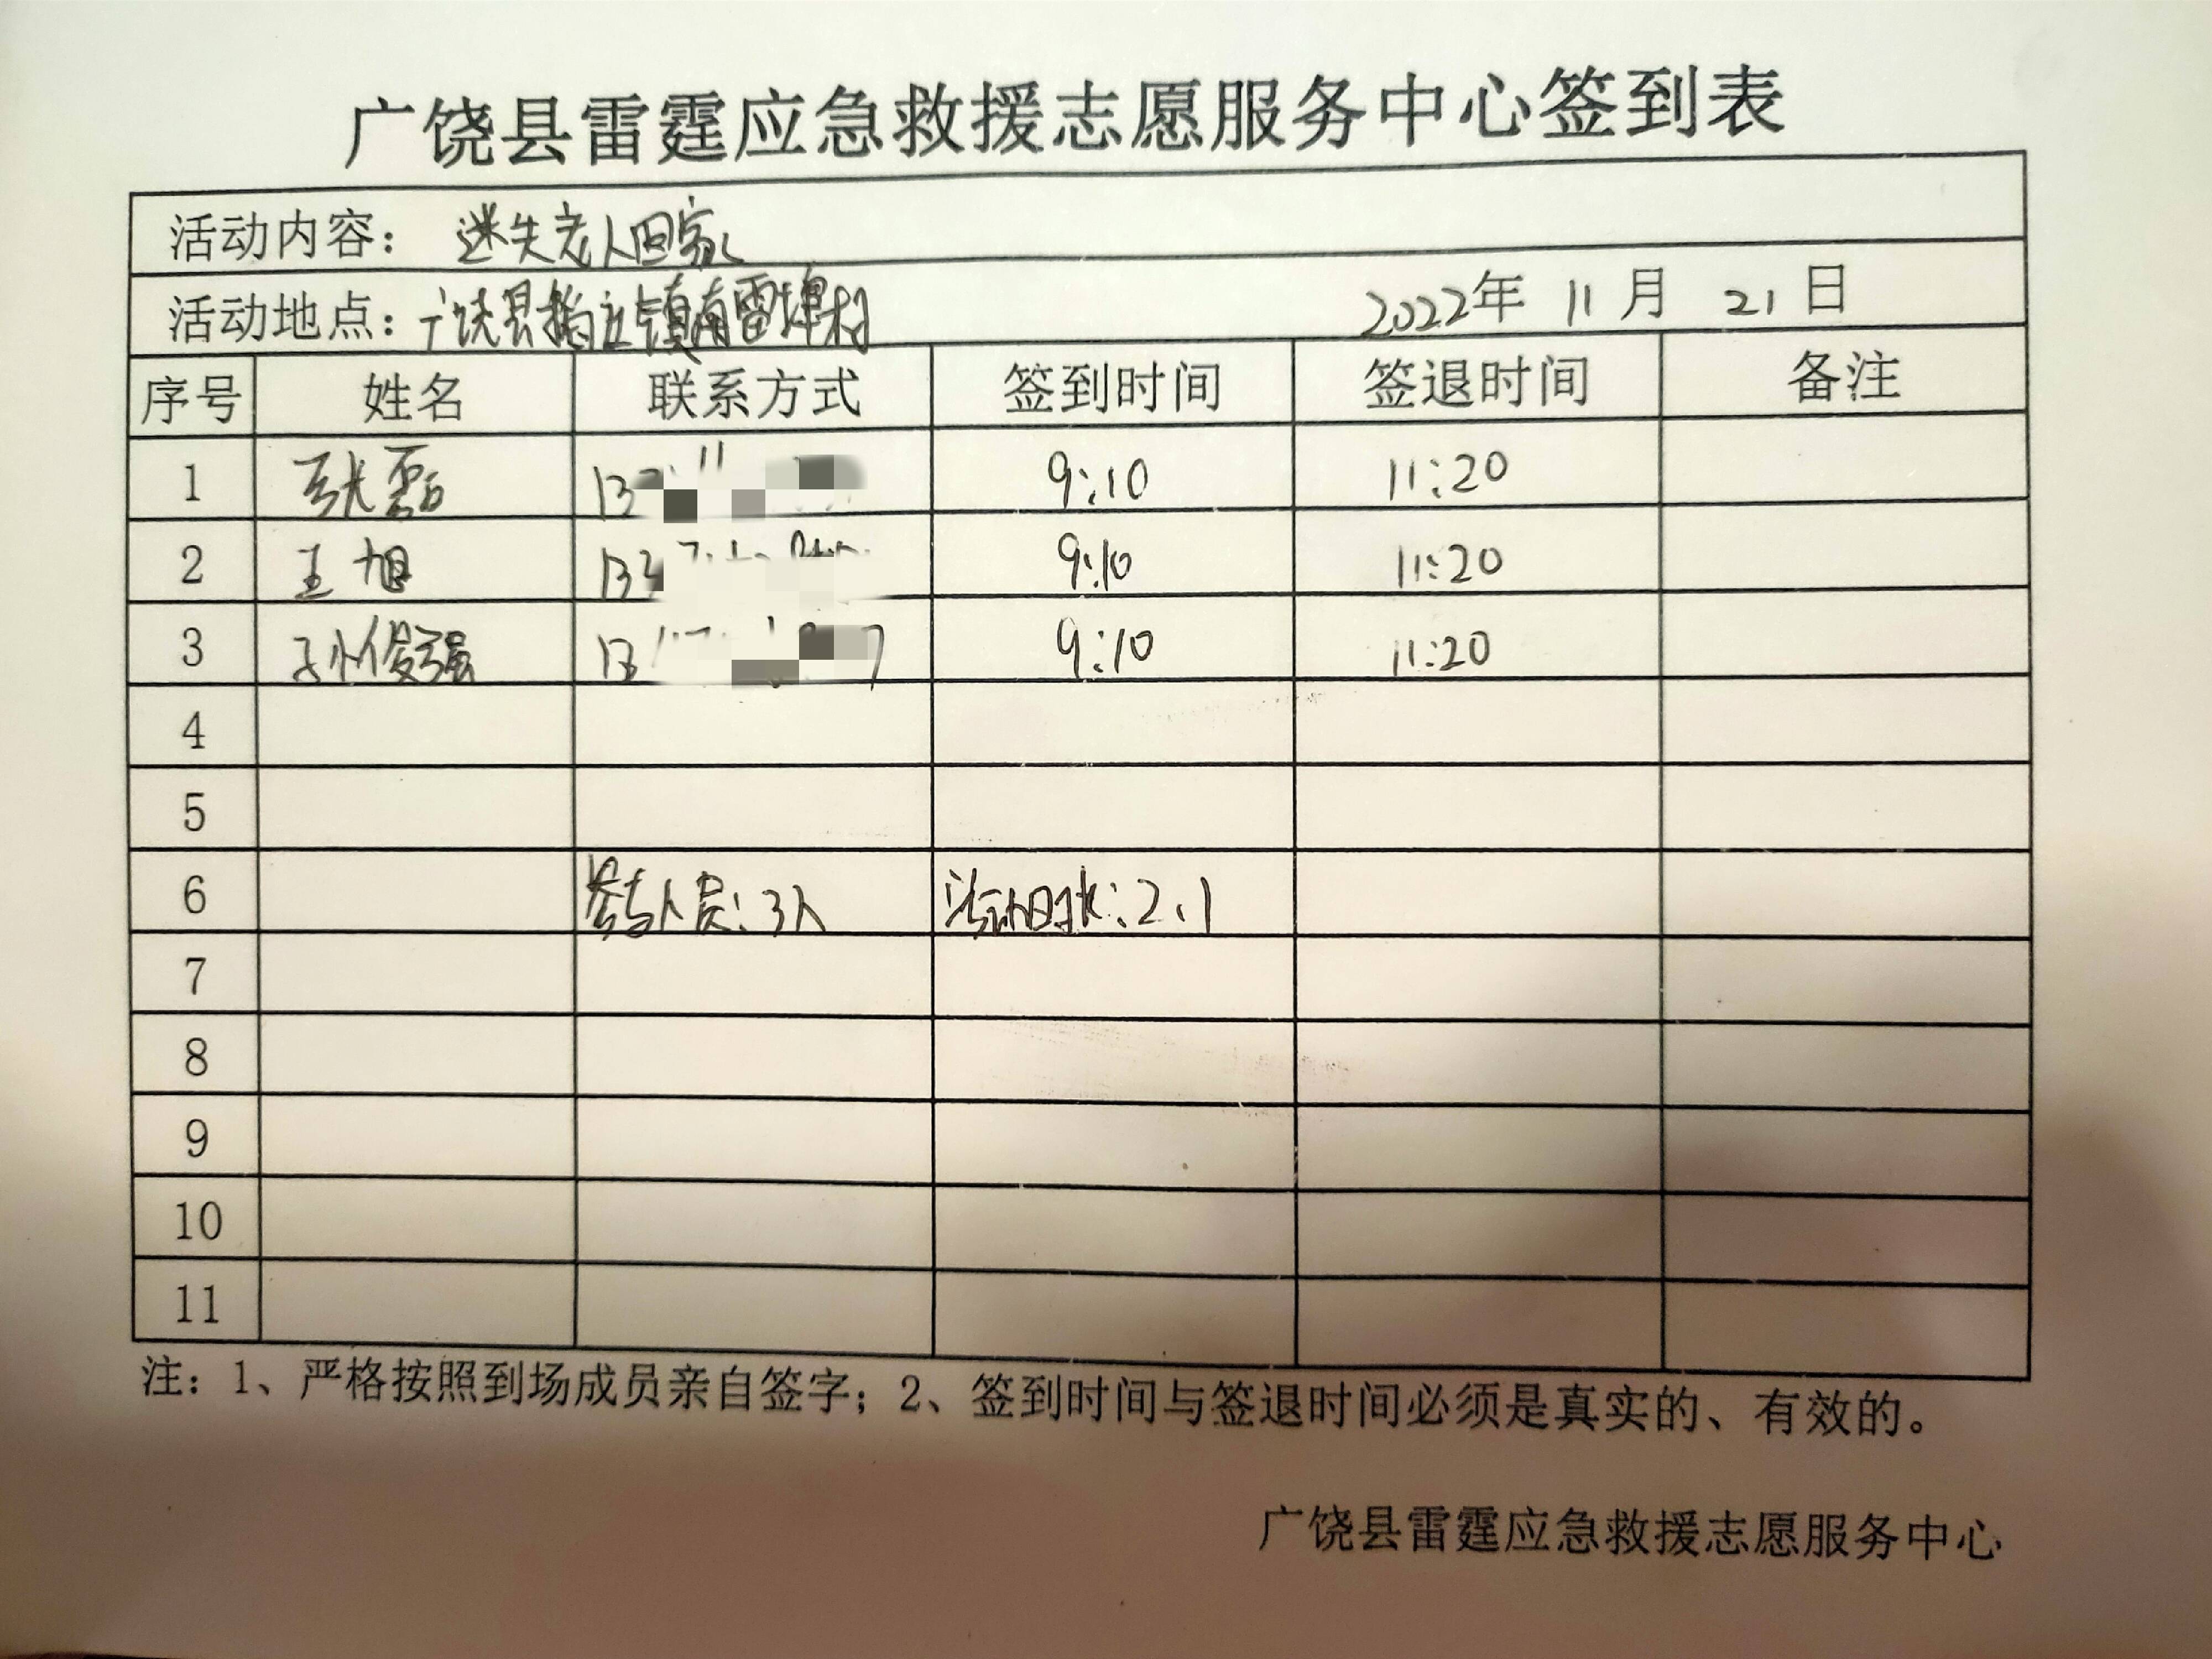 广饶县雷霆应急救援志愿服务中心签到表
活动内容： 迷失老人回家
活动地点：广饶县 镇南雷埠村 2022年 11月 21日
序号 姓名 联系方式 签到时间 签退时间 备注
1 张磊 13 9:10 11:20
2 王旭 133 9:10 11:20
3 孙俊强 13 9:10 11:20
4
5
6 参与人员：3人 活动时长：2.1
7
8
9
10
11
注：1、严格按照到场成员亲自签字；2、签到时间与签退时间必须是真实的、有效的。
广饶县雷霆应急救援志愿服务中心